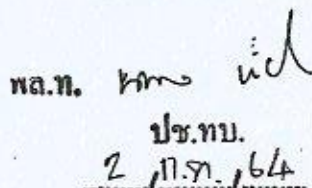 พล.ท.
ปช.ทบ.
2 ก.ค. 64